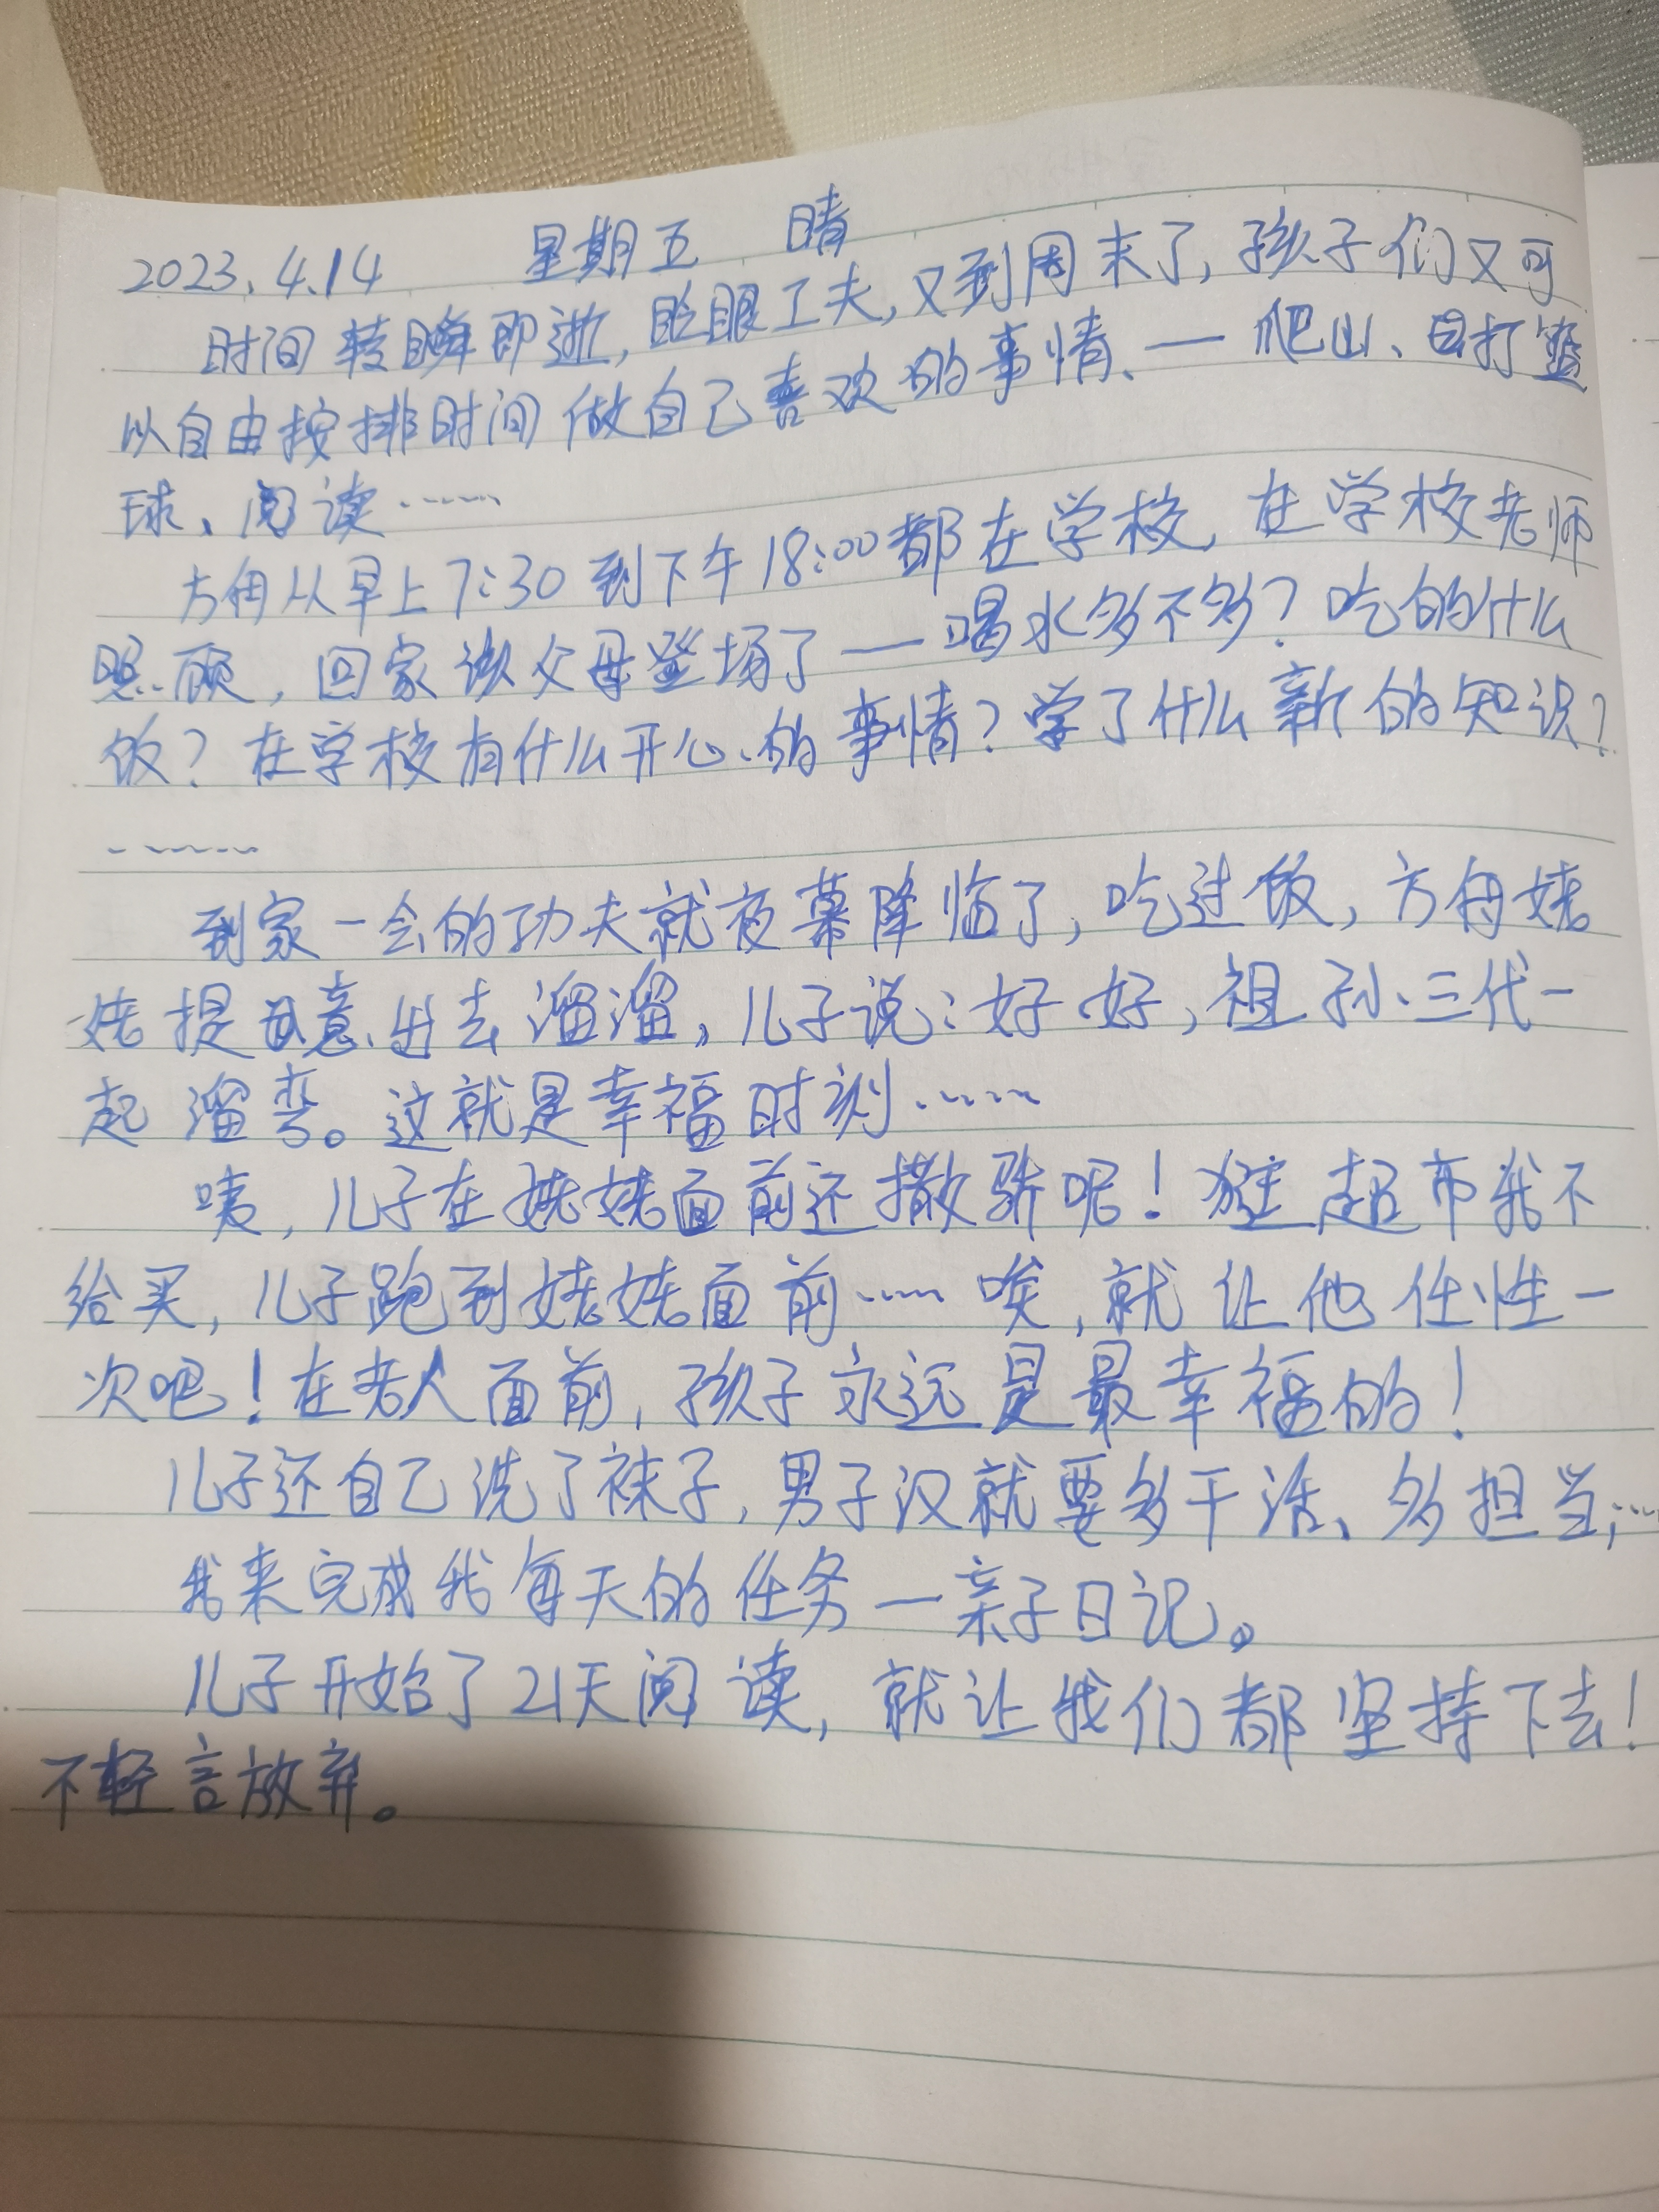 2023.4.14 星期五 晴
时间转瞬即逝,眨眼工夫,又到周末了,孩子们又可
以自由按排时间做自己喜欢的事情、—爬山、打篮
球、阅读……
方冉从早上7:30到下午18:00都在学校,在学校老师
照顾,回家该父母登场了—喝水多不多?吃的什么
饭?在学校有什么开心的事情?学了什么新的知识?
……
到家一会的功夫就夜幕降临了,吃过饭,方冉姥
姥提意出去溜溜,儿子说:好好,祖孙三代一
起溜弯。这就是幸福时刻……
咦,儿子在姥姥面前还撒骄呢!逛超市我不
给买,儿子跑到姥姥面前……唉,就让他任性一
次吧!在老人面前,孩子永远是最幸福的!
儿子还自己洗了袜子,男子汉就要多干活、多担当,……
我来完成我每天的任务—亲子日记。
儿子开始了21天阅读,就让我们都坚持下去!
不轻言放弃。